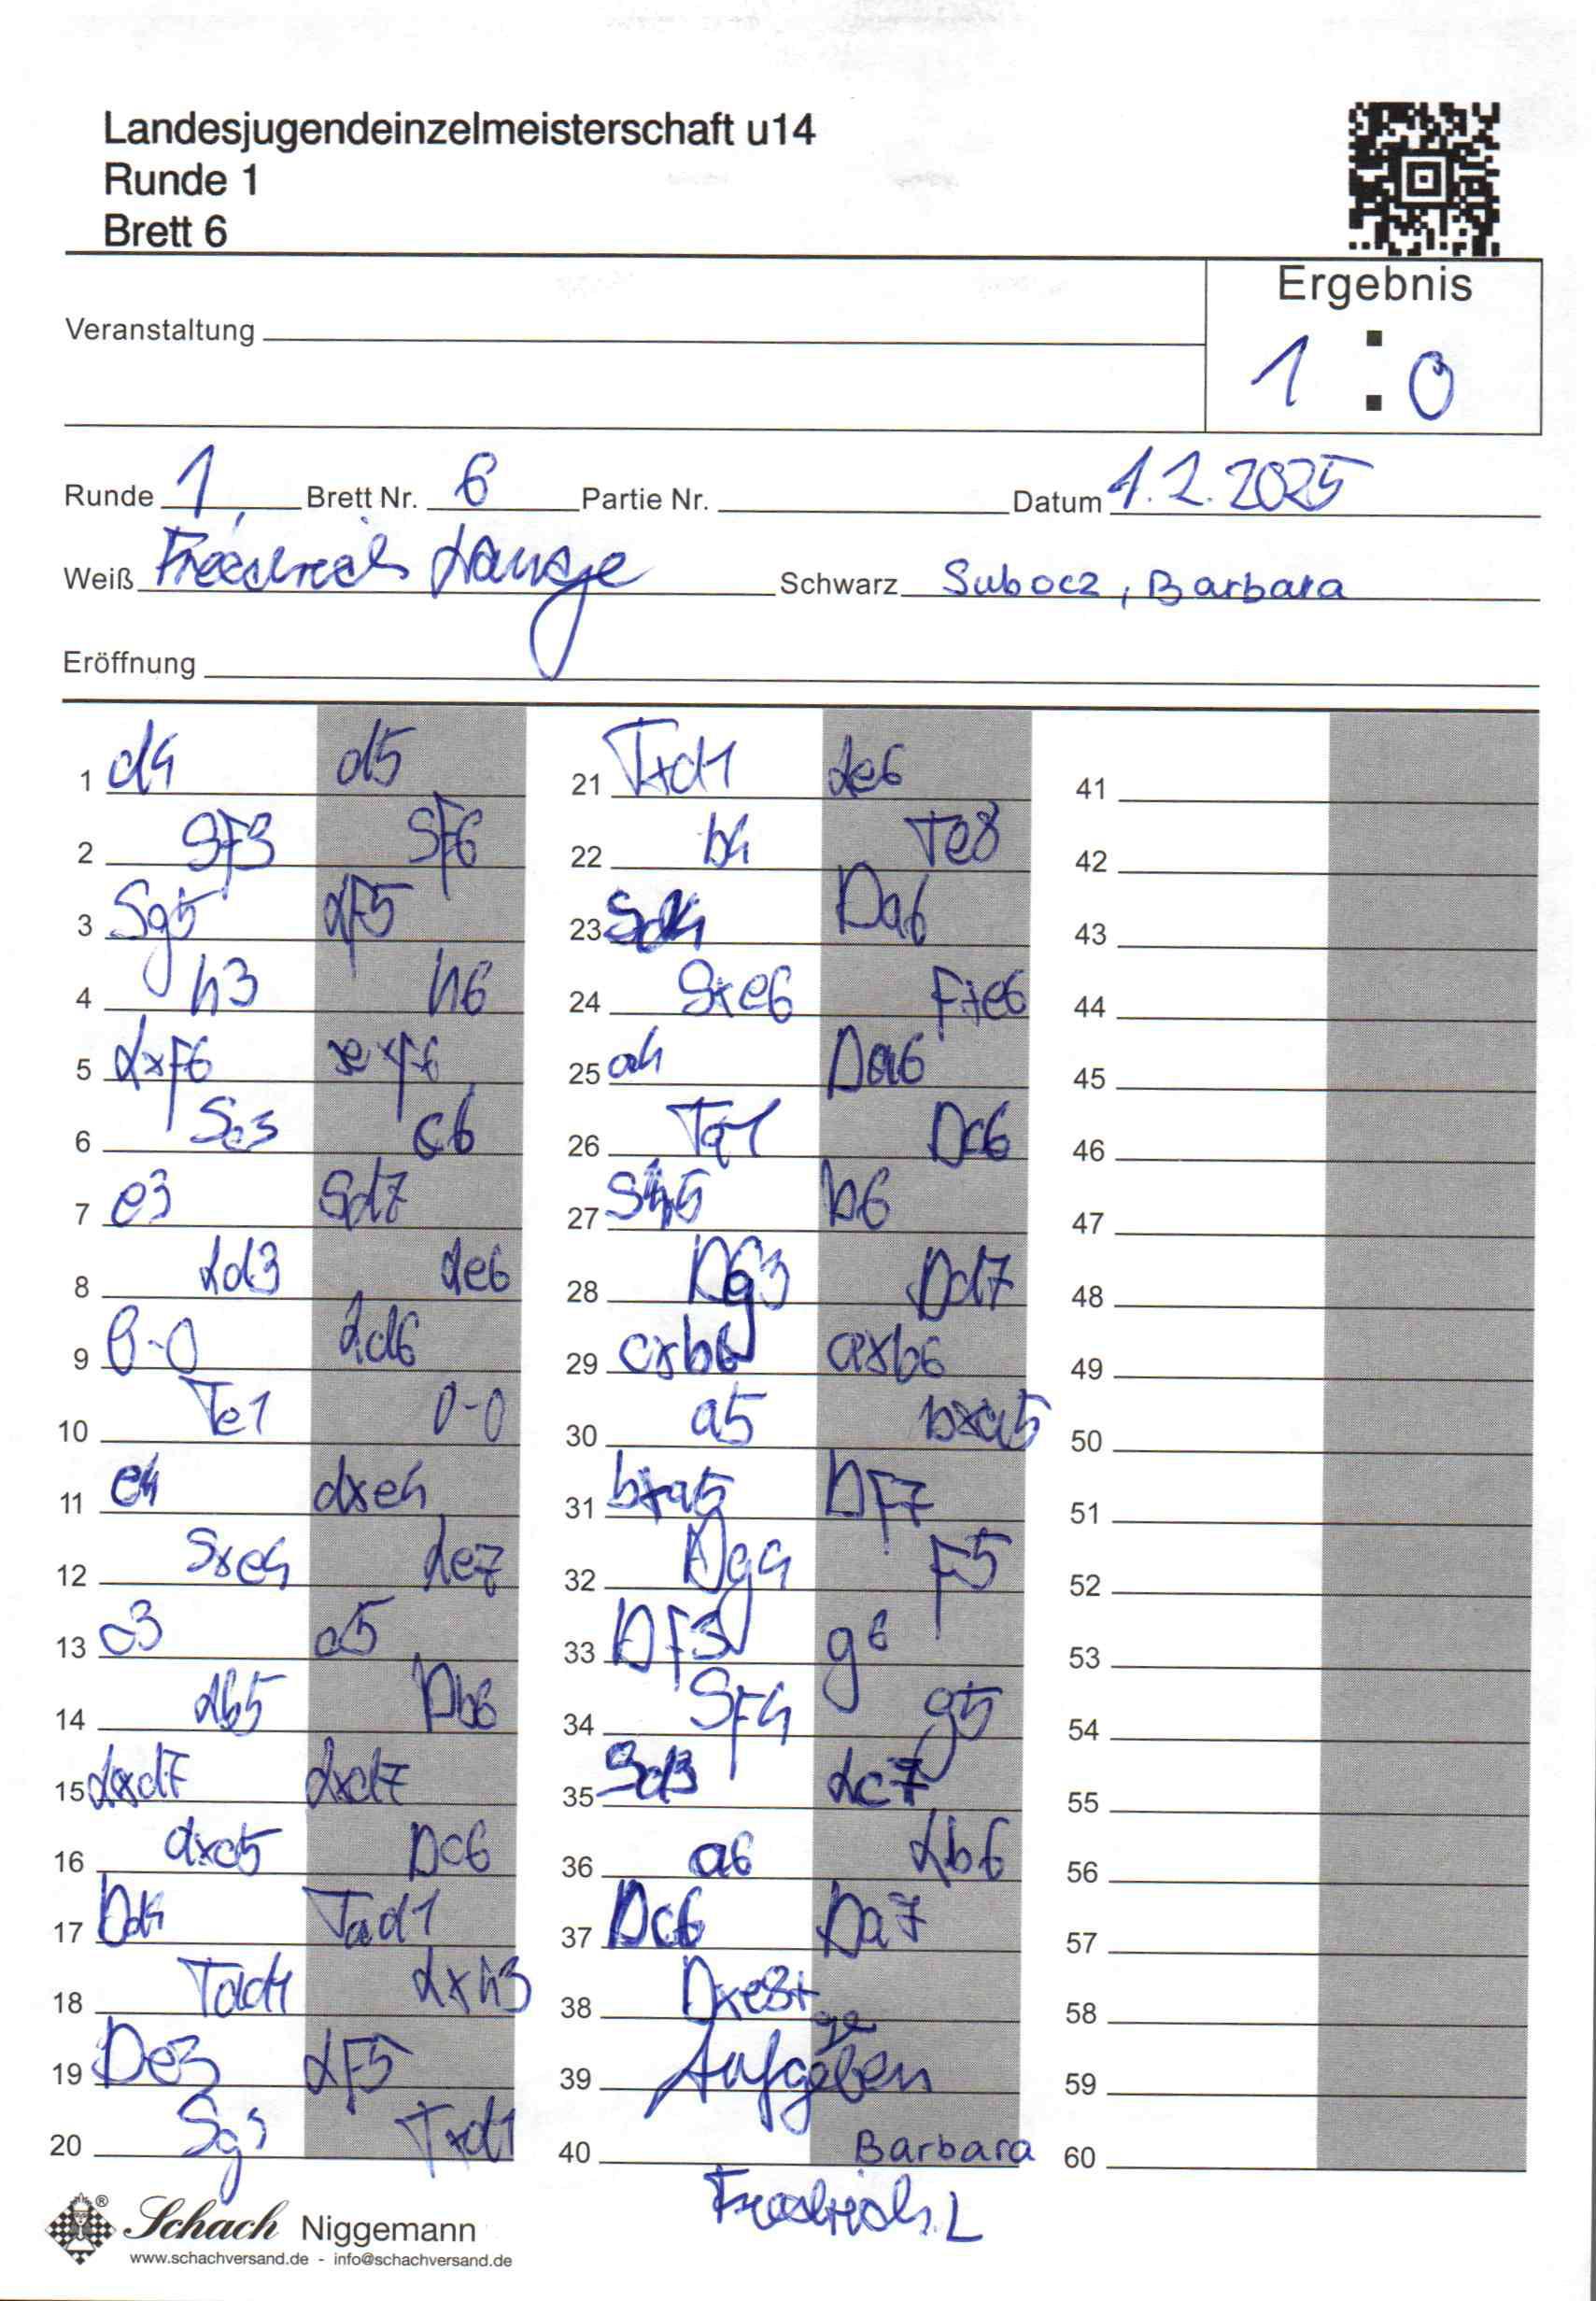 Landesjugendeinzelmeisterschaft u14
Runde 1
Brett 6
Ergebnis
1 : 0
Veranstaltung
Runde 1 Brett Nr. 6 Partie Nr. Datum 1.2.2025
Weiß Friedrich Lange Schwarz Subocz, Barbara
Eröffnung
1 d4 d5
2 Sf3 Sf6
3 Lg5 Lf5
4 h3 h6
5 Lxf6 exf6
6 Sc3 c6
7 e3 Sd7
8 Ld3 Le6
9 0-0 Ld6
10 Te1 0-0
11 e4 dxe4
12 Sxe4 Le7
13 c3 c5
14 Lb5 Db6
15 Lxd7 Lxd7
16 dxc5 Dc6
17 Dd4 Tad1
18 Tad1 Lxh3
19 De3 Lf5
20 Sg3 Txd1
21 Txd1 Le6
22 b4 Te8
23 Sd4 Da6
24 Sxe6 Fxe6
25 a4 Da6
26 Ta1 Dc6
27 Sh5 b6
28 Dg3 Dd7
29 cxb6 axb6
30 a5 bxa5
31 bxa5 Df7
32 Dg4 f5
33 Df3 g6
34 Sf4 g5
35 Sd3 Lc7
36 a6 Lb6
37 Dc6 Da7
38 Dxe8+
39 Aufgeben
ge
40 Barbara
Friedrich L
41
42
43
44
45
46
47
48
49
50
51
52
53
54
55
56
57
58
59
60
Schach Niggemann
www.schachversand.de - info@schachversand.de